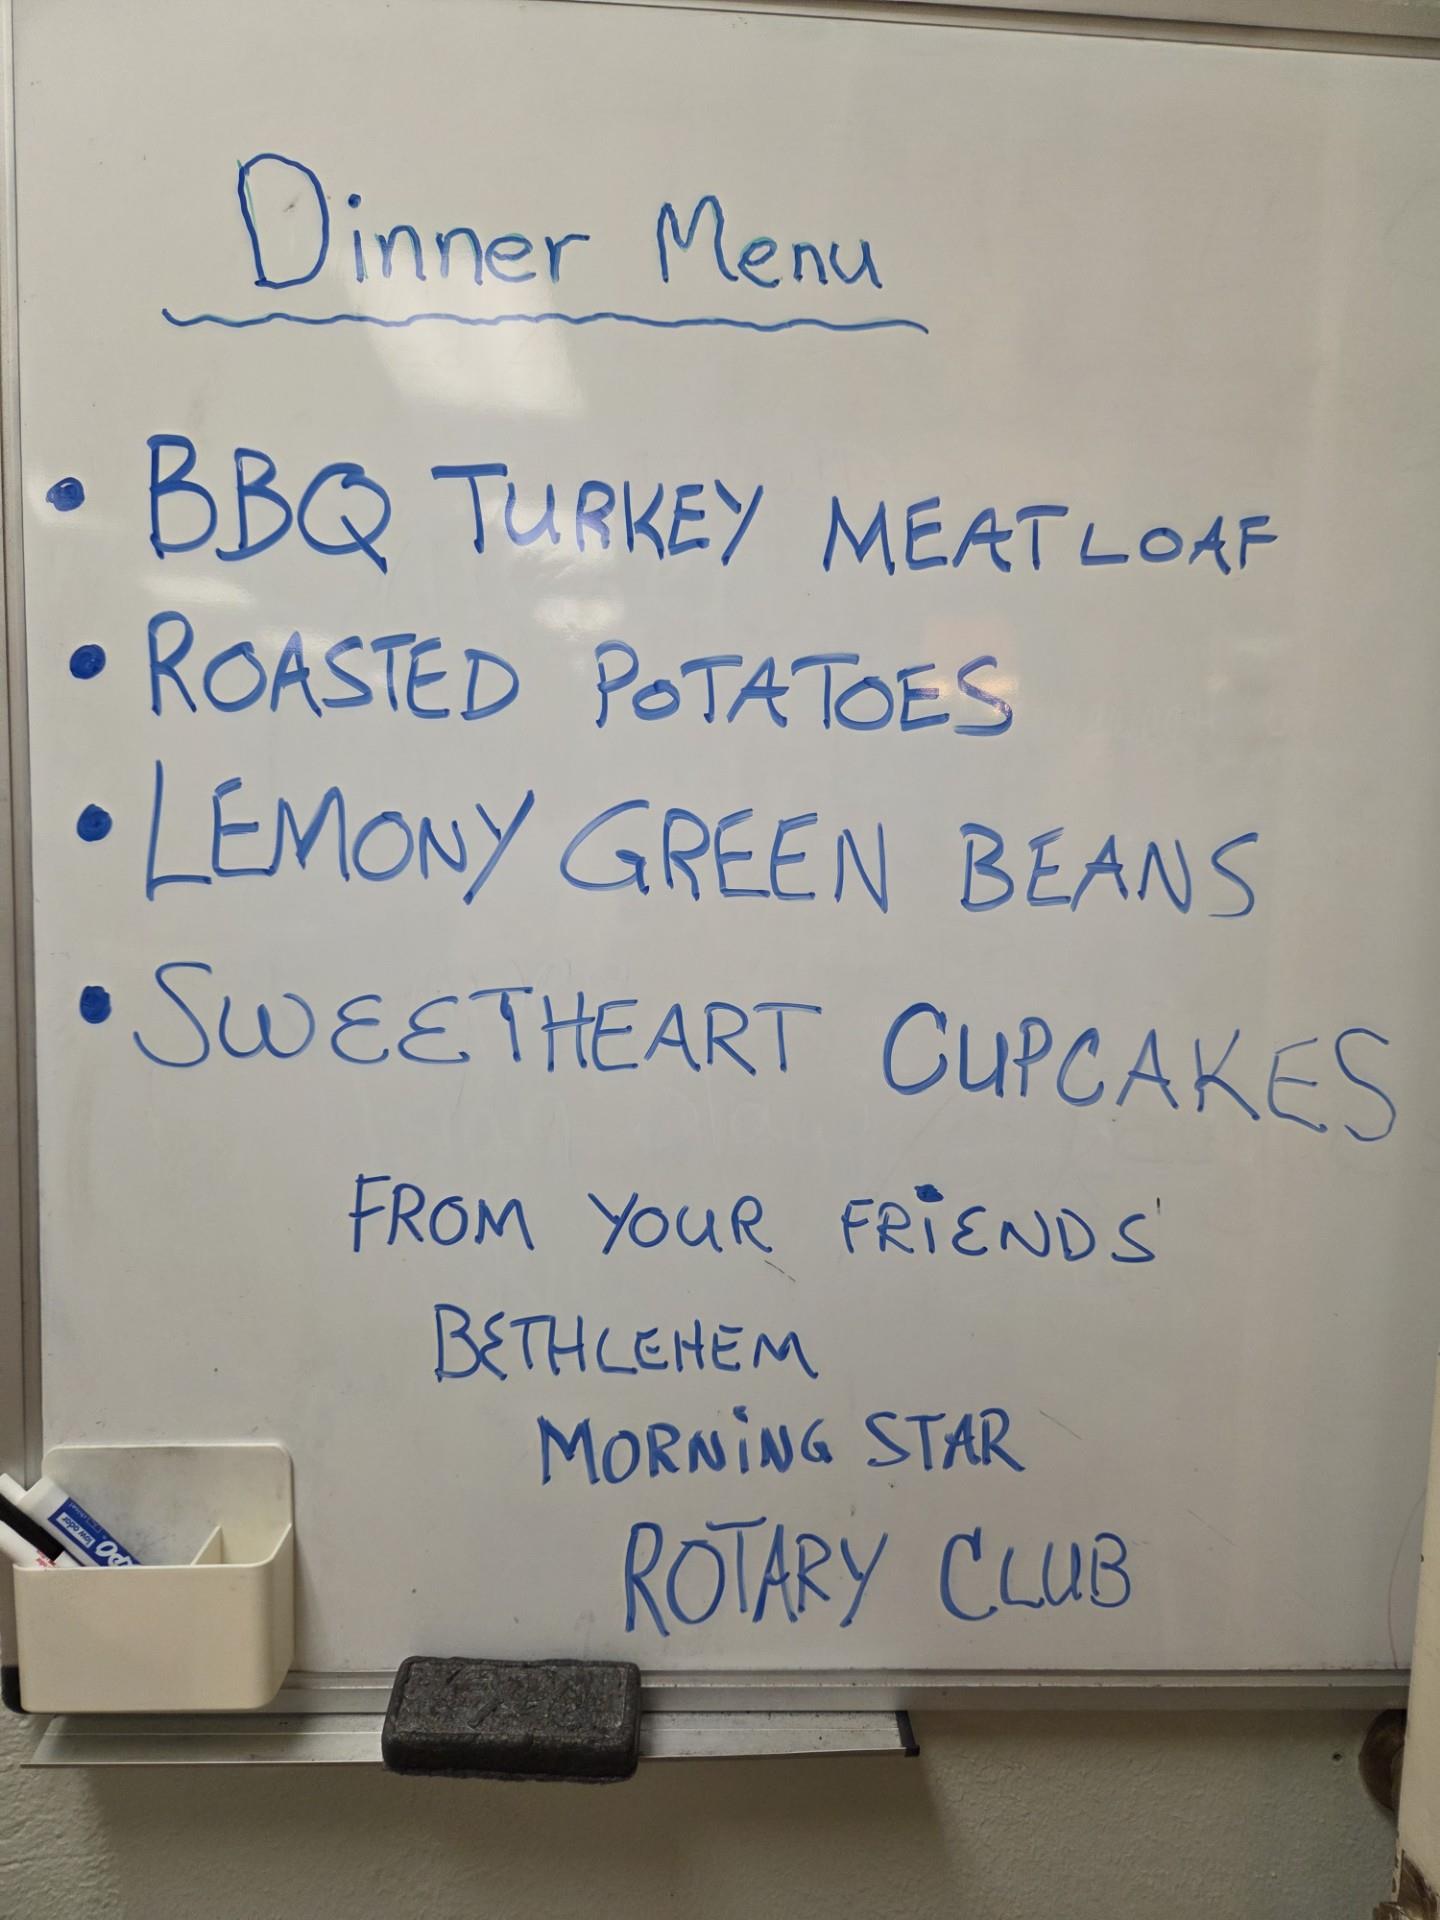 Dinner Menu
• BBQ TURKEY MEATLOAF
• ROASTED POTATOES
• LEMONY GREEN BEANS
• SWEETHEART CUPCAKES
FROM YOUR FRiENDS'
BETHLEHEM
MORNiNG STAR
ROTARY CLUB
low odor